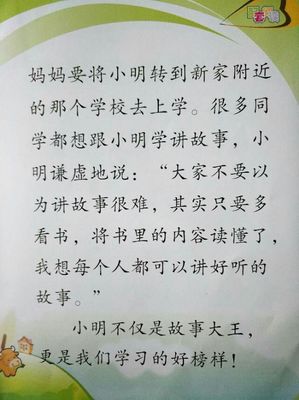 妈妈要将小明转到新家附近
的那个学校去上学。很多同
学都想跟小明学讲故事，小
明谦虚地说：“大家不要以
为讲故事很难，其实只要多
看书，将书里的内容读懂了，
我想每个人都可以讲好听的
故事。”
小明不仅是故事大王，
更是我们学习的好榜样！